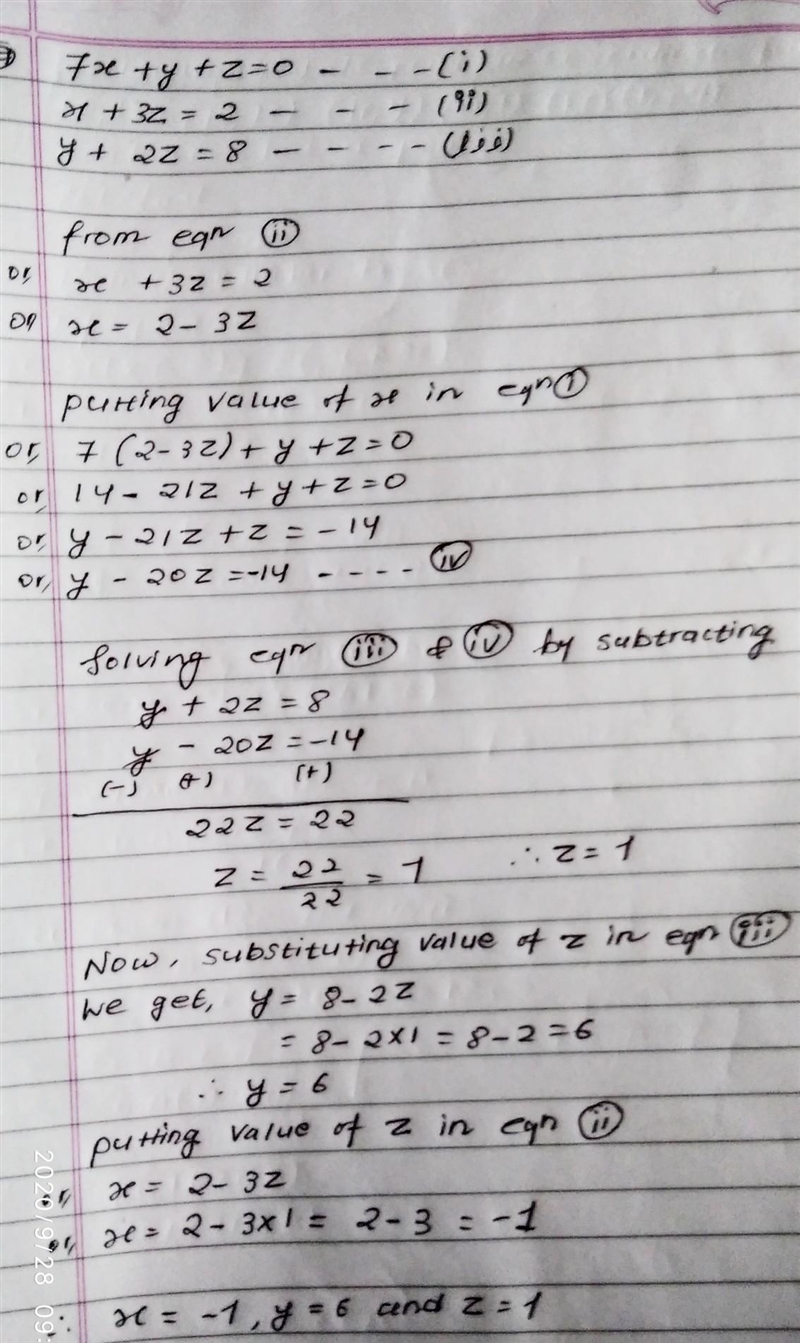 7x + y + z = 0 - - - (i)
x + 3z = 2 - - - (ii)
y + 2z = 8 - - - - (iii)
from eqn (ii)
or, x + 3z = 2
or x = 2 - 3z
putting value of x in eqn (i)
or, 7 (2 - 3z) + y + z = 0
or, 14 - 21z + y + z = 0
or, y - 21z + z = -14
or, y - 20z = -14 - - - - (iv)
Solving eqn (iii) & (iv) by subtracting
y + 2z = 8
y - 20z = -14
(-) (+) (+)
22z = 22
z = 22/22 = 1 ∴ z = 1
Now, substituting value of z in eqn (iii)
we get, y = 8 - 2z
= 8 - 2×1 = 8 - 2 = 6
∴ y = 6
putting value of z in eqn (ii)
or, x = 2 - 3z
or, x = 2 - 3×1 = 2 - 3 = -1
∴ x = -1, y = 6 and z = 1
2020/9/28 09: